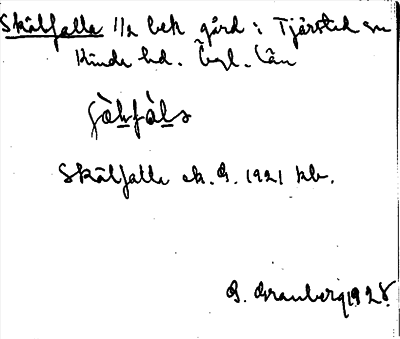 Skälfalla 1/2 bek gård i Tjärstad sn
Kinda hd. Ögl. län
Skälfalla ek. G. 1921 kb.
G. Granberg 1928.